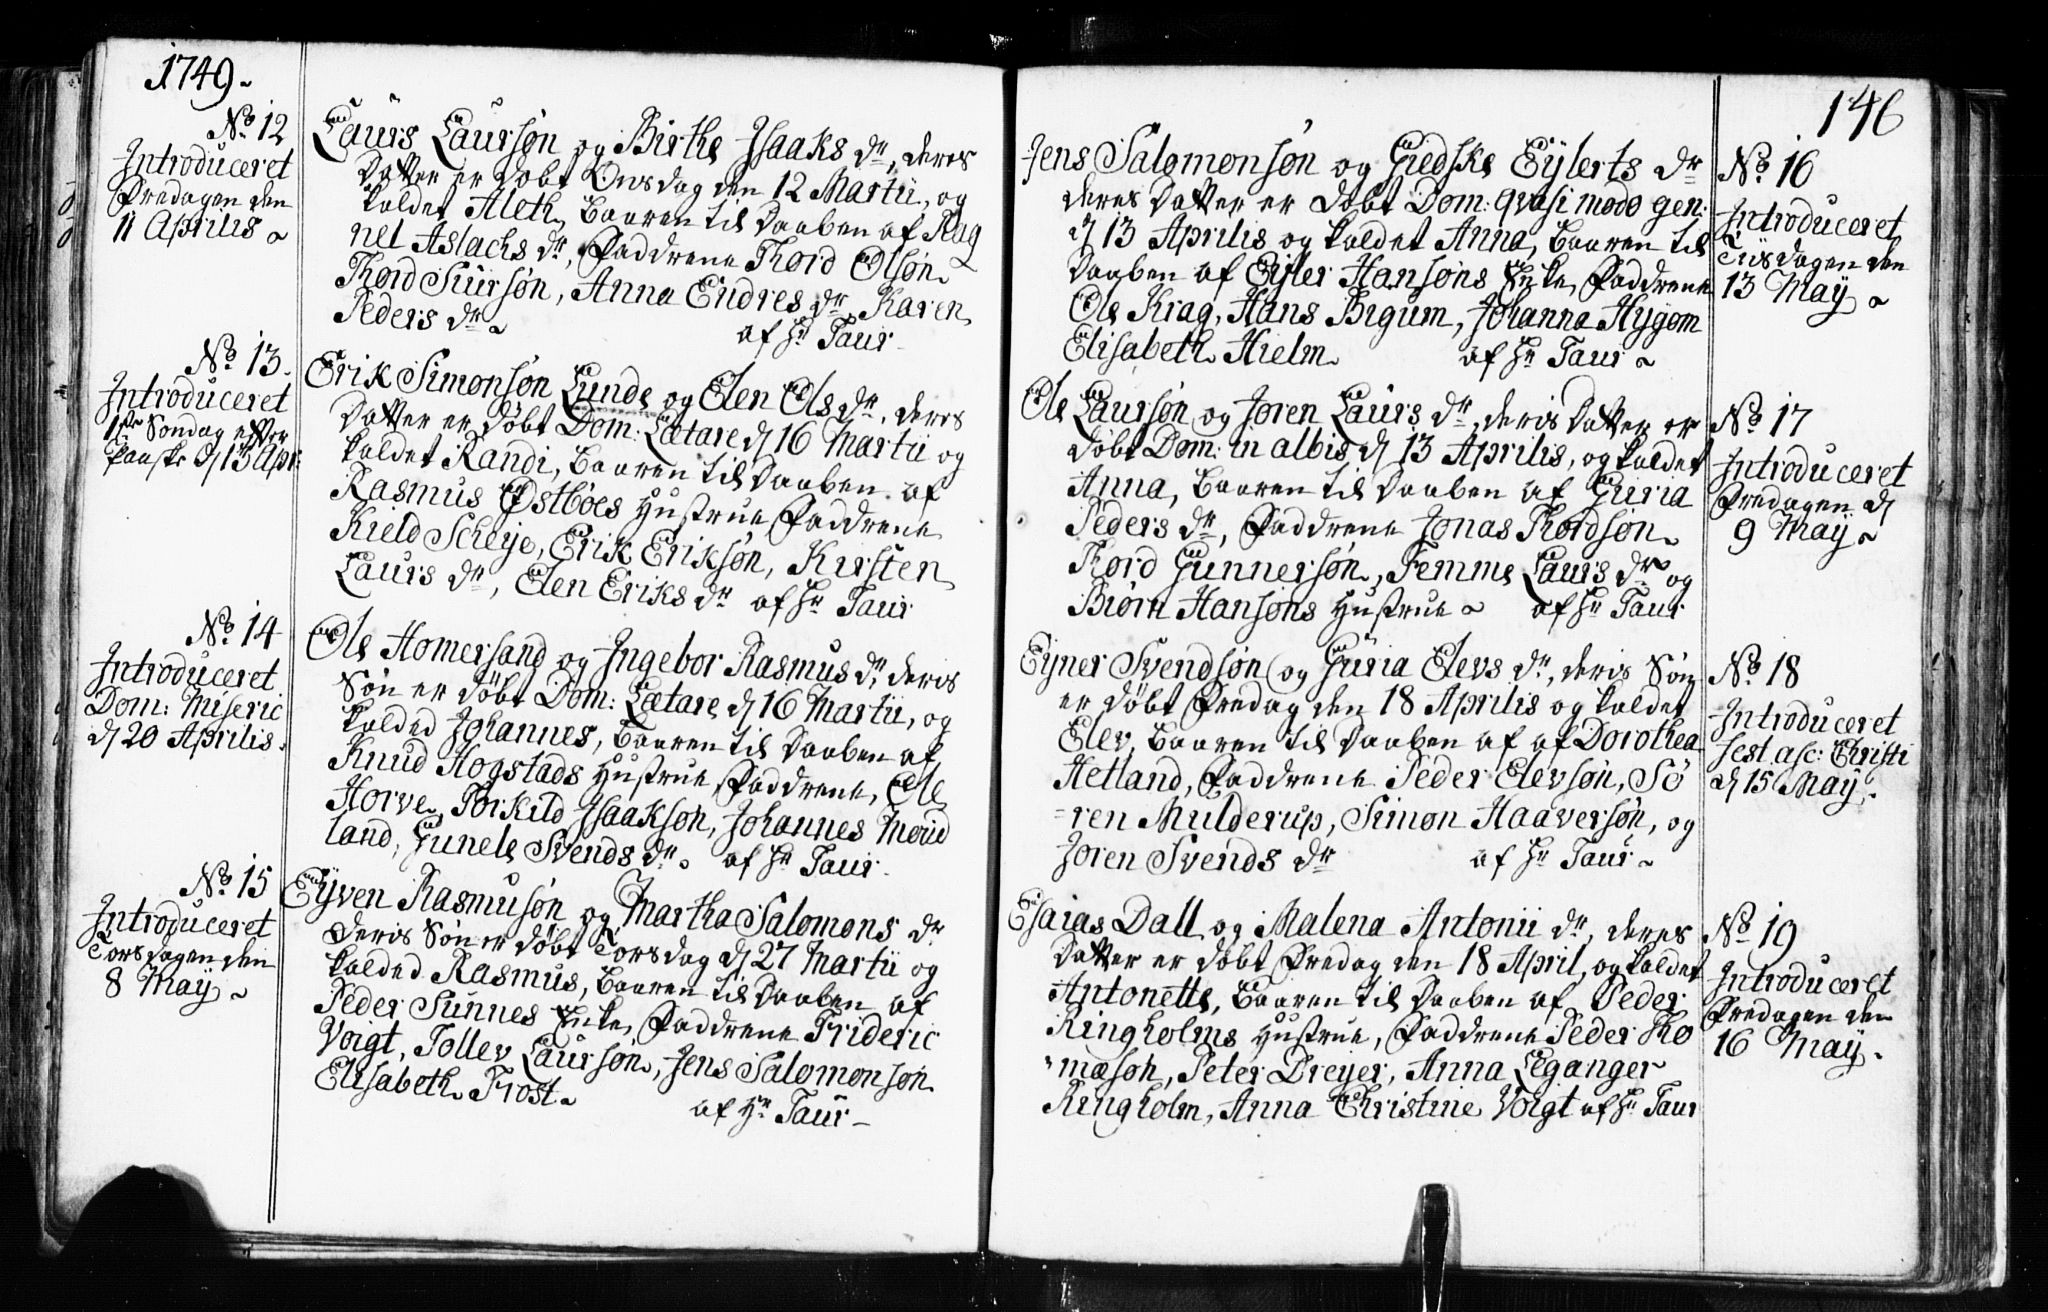 1749
No. 12
Introduceret
Fredagen den
11 Aprilis
Laurs Laursøn og Birthe Isaaks dr, deres
Datter er døbt Onsdag den 12 Martii, og
kaldet Aleth, baaren til Daaben af Rag
nel Aslachs dr, Faddrene Thord Olsøn
Thord Siursøn, Anna Endres dr, Karen
Peders dr af Hr Taur
No. 13.
Introduceret
1ste Søndag efter
Paaske d 13 Apr:
Erik Simonsøn Lunde og Elen Ols dr, deres
Datter er døbt Dom: Lætare d 16 Martii og
kaldet Randi, baaren til Daaben af
Rasmus Østbøes Hustrue, Faddrene
Kield Scheije, Erik Eriksøn, Kirsten
Laurs dr, Elen Eriks dr af Hr Taur
No. 14
Introduceret
Dom: Miseric
d 20 Aprilis.
Ole Homersand og Ingebor Rasmus dr, deris
Søn er døbt Dom: Lætare d 16 Martii, og
kalded Johannes, baaren til Daaben af
Knud Hogstads Hustrue, Faddrene, Ole
Horve, Torkild Isaaksøn, Johannes Merid
land, Gunele Svends dr. af Hr Taur.
No. 15
Introduceret
Torsdagen den
8 May
Eyven Rasmusøn og Martha Salomons dr
deris Søn er døbt Torsdag d 27 Martii og
kalded Rasmus, baaren til Daaben af
Peder Sunnes Enke, Faddrene Frideric
Voigt, Tollev Laursøn, Jens Salomonsøn
Elisabeth Frost
af Hr Taur
146
Jens Salomonsøn og Giedske Eylerts dr
deres Datter er døbt Dom: qvasi modo gen:
d 13 Aprilis og kaldet Anna, baaren til
Daaben af Eyler Hansøns Enke, Faddrene
Ole Krag, Hans Bigum, Johanna Hygom
Elisabeth Hielm af Hr Taur
No. 16
Introduceret
Tiisdagen den
13 May
Ole Laursøn og Joren Laurs dr, deris Datter er
døbt Dom: in albis d 13 Aprilis, og kaldet
Anna, baaren til Daaben af Guria
Peders dr, Faddrene Jonas Thordsøn
Thord Gunnersøn, Femme Laurs dr og
Biørn Hansøns Hustrue af Hr Taur
No. 17
Introduceret
Fredagen d
9 May
Eyner Svendsøn og Guria Elevs dr, deris Søn
er døbt Fredag den 18 Aprilis og kaldet
Elev, baaren til Daaben af af Dorothea
Hetland, Faddrene Peder Elevsøn, Sø
=ren Mulderup, Simon Haaversøn, og
Joren Svends dr af Hr Taur
No. 18
Introduceret
fest. asc: Christi
d 15 May.
Esaias Dall og Malena Antonii dr, deres
Datter er døbt Fredag den 18 April, og kaldet
Antonette, baaren til Daaben af Peder
Ringholms Hustrue, Faddrene Peder Tho
=mæsøn, Peter Dreyer, Anna Leganger
Ringholm, Anna Christine Voigt af Hr Taur
No. 19
Introduceret
Fredagen den
16 May.